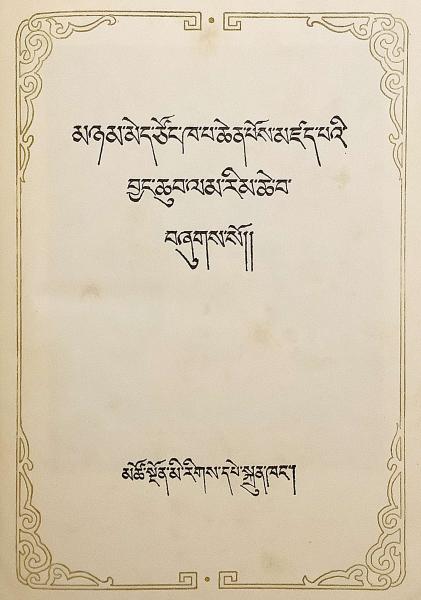 མཉམ་མེད་ཙོང་ཁ་པ་ཆེན་པོས་མཛད་པའི
བྱང་ཆུབ་ལམ་རིམ་ཆེ་བ
བཞུགས་སོ།།
མཚོ་སྔོན་མི་རིགས་དཔེ་སྐྲུན་ཁང་།